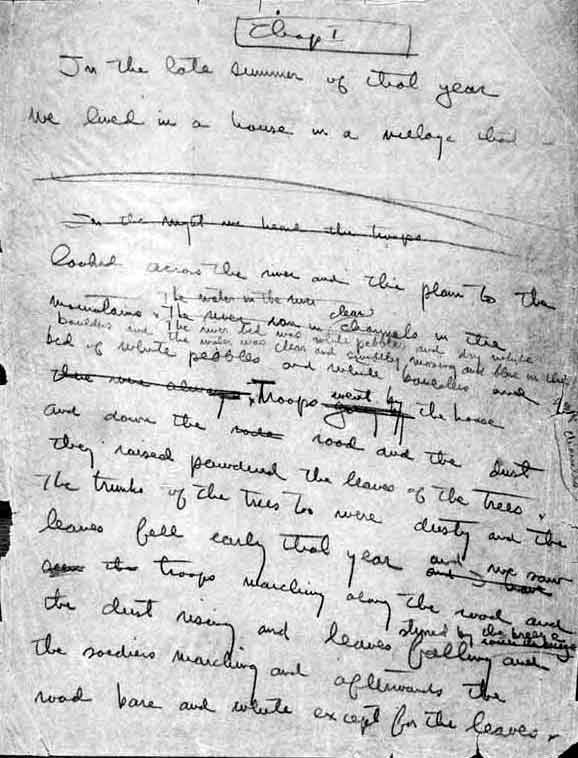 Chap I
In the late summer of that year
we lived in a house in a village that
In the night we heard the troops
looked across the river and the plain to the
The water in the river clear
mountains. The river ran in channels in the
The river bed was white pebbles and dry white
boulders and the water was clear and swiftly moving and blue in the
bed of white pebbles and white boulders and
channels
there were always Troops went by the house
going
and down the road and the dust
they raised powdered the leaves of the trees.
The trunks of the trees too were dusty and the
leaves fell early that year and we saw
and
the troops marching along the road and
the dust rising and leaves falling and
stirred by the breeze
the soldiers marching and afterwards the
road bare and white except for the leaves.